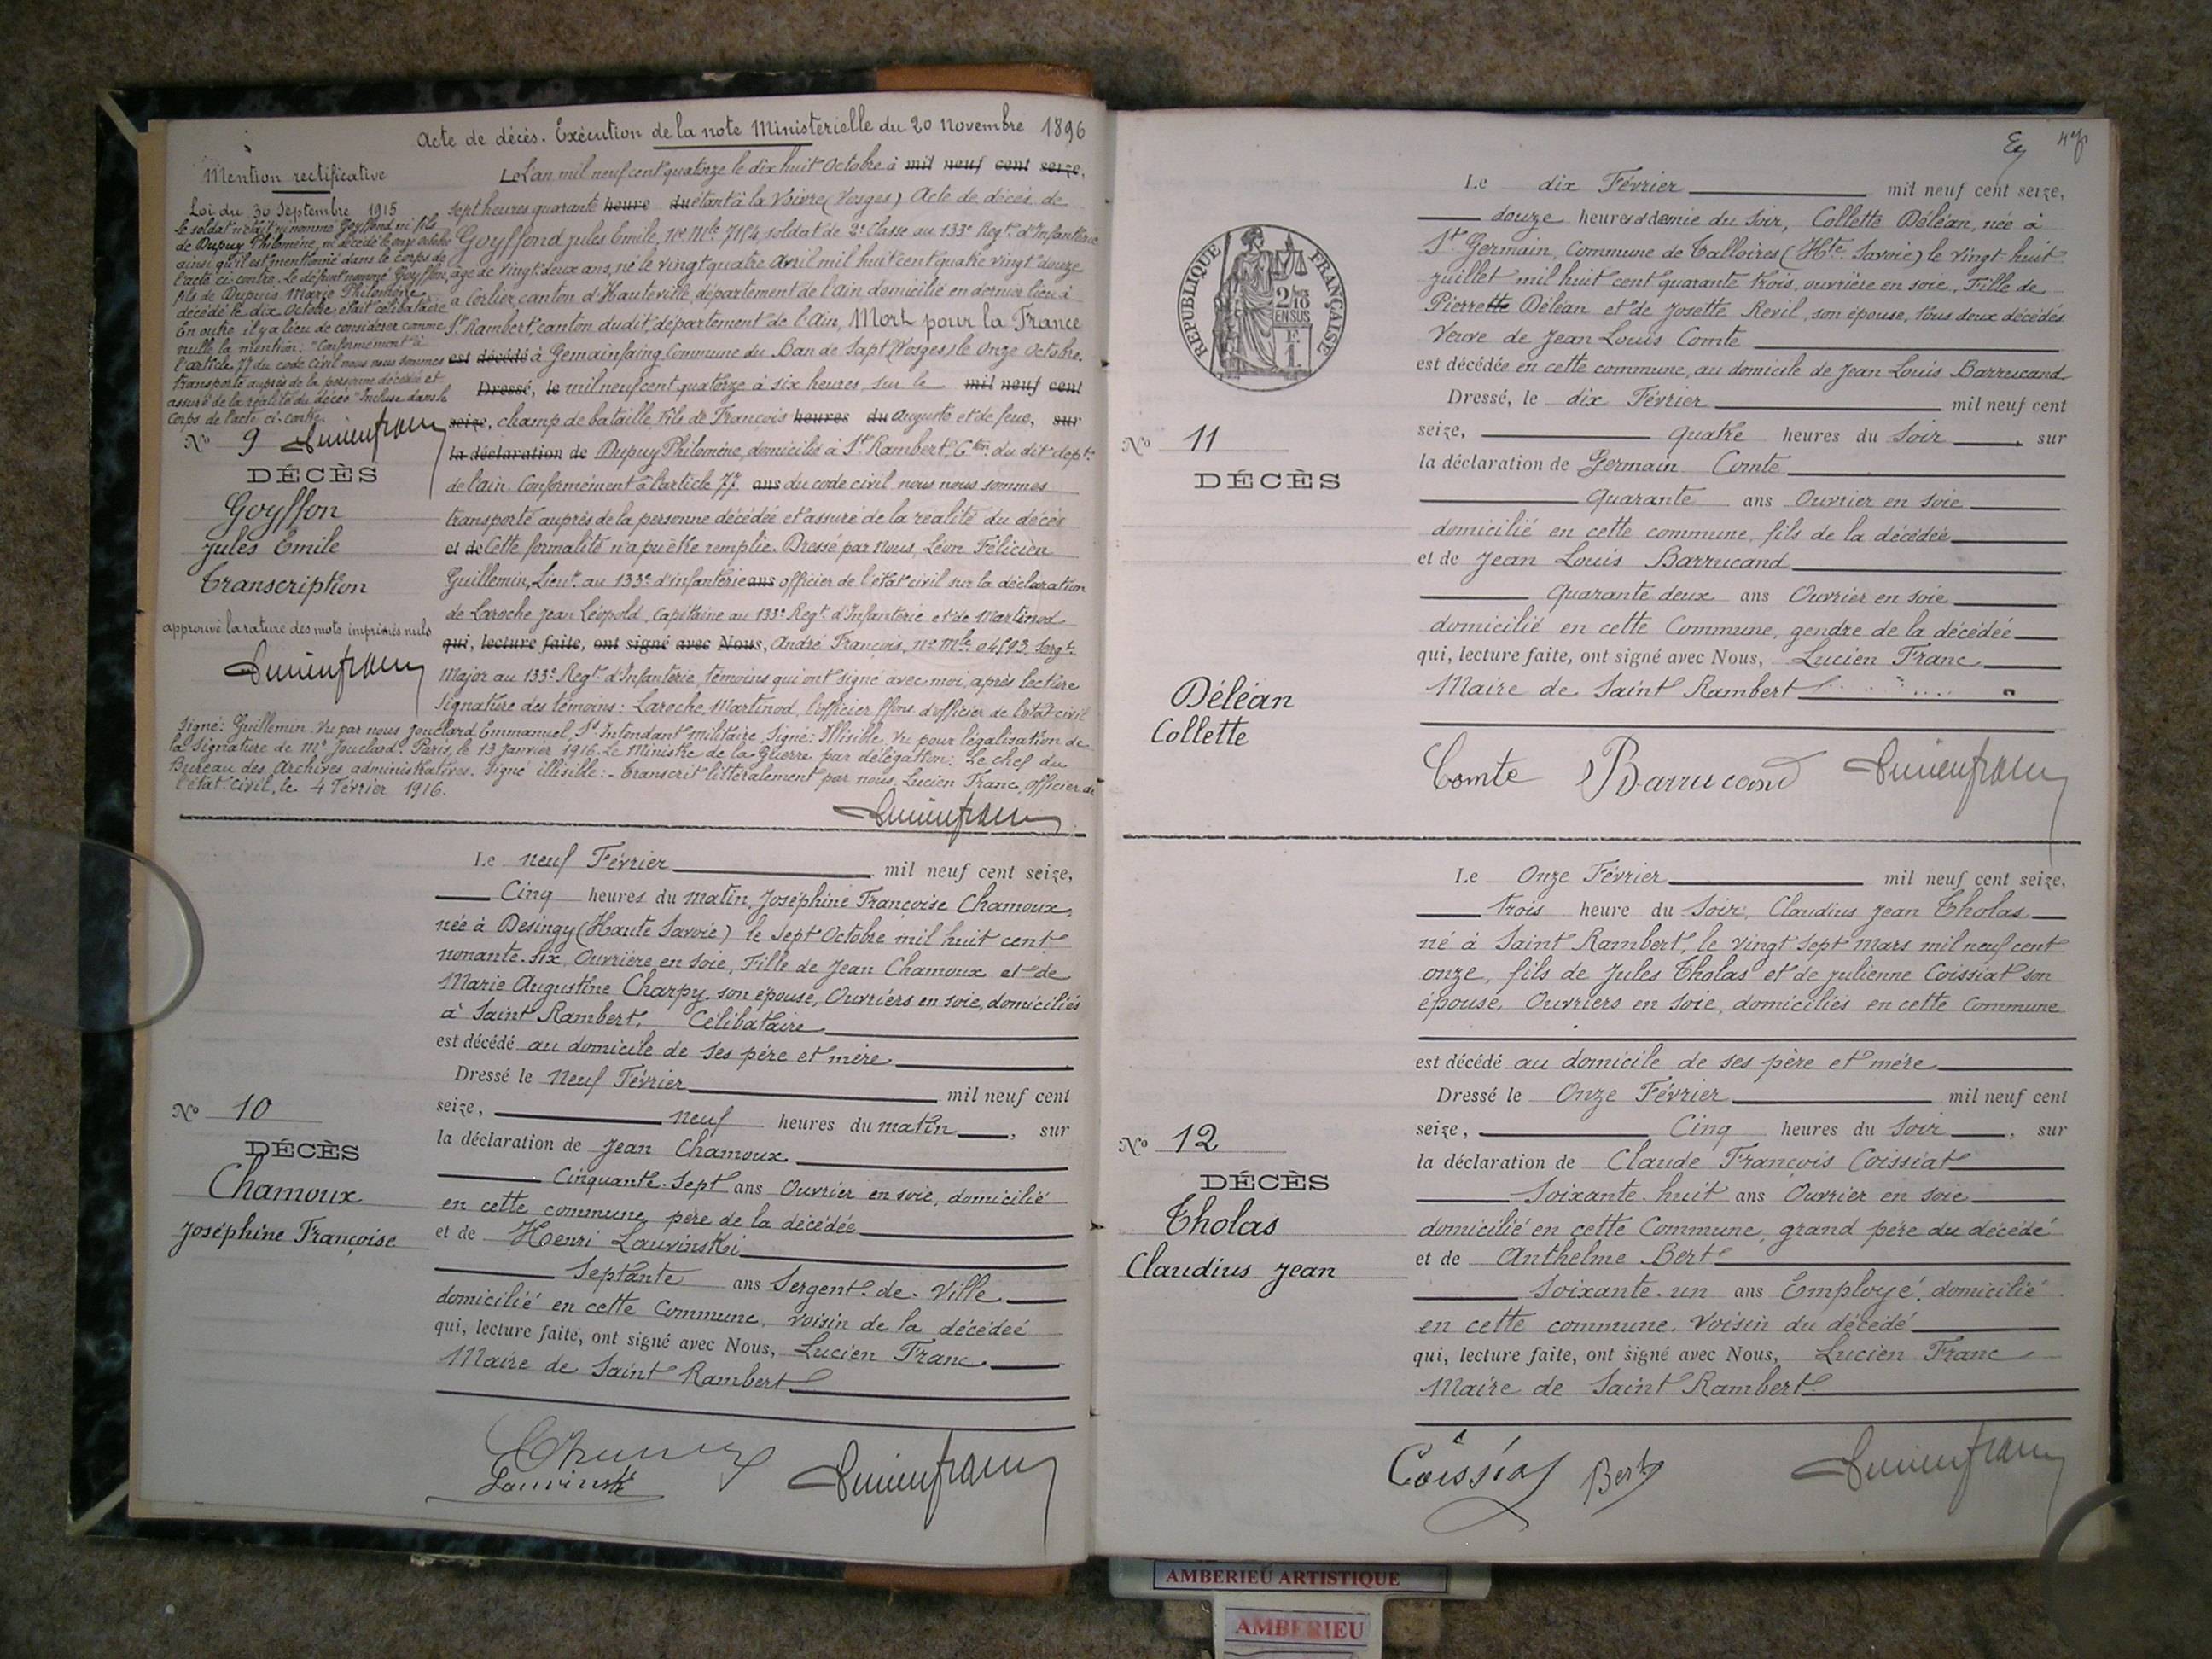 Acte de décès. Exécution de la note Ministérielle du 20 novembre 1896
Mention rectificative
Loi du 30 Septembre 1915
Le soldat n'était ni nommé Goyffond, ni fils
de Dupuy Philomène, ni décédé le onze octobre
ainsi qu'il est mentionné dans le corps de
l'acte ci-contre. Le défunt nommé Goyffon,
fils de Dupuis Marie Philomène,
décédé le dix Octobre, était célibataire
En outre il y a lieu de considérer comme
nulle la mention. "Conformément à
l'article 77 du code Civil nous nous sommes
transporté auprès de la personne décédée et
assuré de la réalité du décès" Incluse dans le
corps de l'acte ci-contre.
No 9
DÉCÈS
Goyffon
Jules Emile
Transcription
approuvé la rature des mots imprimés nuls
Le L'an mil neuf cent quatorze le dix huit Octobre à mil neuf cent seize,
sept heures quarante heure du étant à la Voivre (Vosges) Acte de décès de
Goyffond Jules Emile, No Mle 7154 soldat de 2e Classe au 133e Regt d'Infanterie
âgé de vingt deux ans, né le vingt quatre Avril mil huit cent quatre vingt douze
à Corlier, canton d'Hauteville, département de l'Ain domicilié en dernier lieu à
St Rambert canton dudit département de l'Ain, Mort pour la France
est décédé à Gemainfaing Commune du Ban de Sapt (Vosges) le onze Octobre.
Dressé, le mil neuf cent quatorze à six heures sur le mil neuf cent
seize, champ de bataille, Fils de François heures du Auguste et de feue, sur
la déclaration de Dupuy Philomène, domicilié à St Rambert Cton du dit dept
de l'ain Conformément à l'article 77 ans du code civil nous nous sommes
transporté auprès de la personne décédée et assuré de la réalité du décès
et de Cette formalité n'a pu être remplie. Dressé par Nous, Léon Félicien
Guillemin, Lieut au 133e d'infanterie ans officier de l'état civil sur la déclaration
de Laroche Jean Léopold, Capitaine au 133e Regt d'Infanterie et de Martinod
qui, lecture faite, ont signé avec Nous, André François, no mle 04593, Sergt
Major au 133e Regt d'Infanterie, témoins qui ont signé avec moi, après lecture
Signature des témoins : Laroche, Martinod, l'officier ffons d'officier de l'état civil
Signé : Guillemin. Vu par nous Jouclard Emmanuel, St Intendant militaire, Signé : Illisible, Vu pour légalisation de
la signature de Mr Jouclard. Paris, le 13 Janvier 1916. Le Ministre de la Guerre par délégation : Le chef du
Bureau des Archives administratives. Signé illisible : - Transcrit littéralement par nous, Lucien Franc, Officier de
l'état-civil, le 4 Février 1916.
Lucien franc
No 10
DÉCÈS
Chamoux
Joséphine Françoise
Le neuf Février mil neuf cent seize,
Cinq heures du matin, Joséphine Françoise Chamoux,
née à Desingy (Haute Savoie) le Sept Octobre mil huit cent
nonante-six, Ouvrière en Soie, Fille de Jean Chamoux et de
Marie Augustine Charpy, son épouse, Ouvriers en soie, domiciliés
à Saint Rambert. Célibataire
est décédé au domicile de ses père et mère
Dressé le Neuf Février mil neuf cent
seize, neuf heures du matin, sur
la déclaration de Jean Chamoux
Cinquante-Sept ans Ouvrier en soie, domicilié
en cette commune père de la décédée
et de Henri Lauvinski
Septante ans Sergent-de-Ville
domicilié en cette Commune, voisin de la décédée
qui, lecture faite, ont signé avec Nous, Lucien Franc
Maire de Saint Rambert
Lauvinski
Lucien franc
RÉPUBLIQUE FRANÇAISE
2/10
EN SUS
F.
1.
No 11
DÉCÈS
Déléan
Collette
Le dix Février mil neuf cent seize,
douze heures et demie du Soir, Collette Déléan, née à
St Germain, Commune de Talloires (Hte Savoie) le vingt-huit
juillet mil huit cent quarante trois, ouvrière en soie, Fille de
Pierrette Déléan et de Josette Revil, son épouse, tous deux décédés
Veuve de Jean Louis Comte
est décédée en cette commune, au domicile de Jean Louis Barrucand
Dressé, le dix Février mil neuf cent
seize, quatre heures du Soir, sur
la déclaration de Germain Comte
Quarante ans Ouvrier en Soie
domicilié en cette commune, fils de la décédée
et de Jean Louis Barrucand
Quarante deux ans Ouvrier en Soie
domicilié en cette Commune, gendre de la décédée
qui, lecture faite, ont signé avec Nous, Lucien Franc
Maire de Saint Rambert
Comte Barrucand Lucien franc
No 12
DÉCÈS
Tholas
Claudius Jean
Le Onze Février mil neuf cent seize,
trois heure du Soir, Claudius Jean Tholas
né à Saint Rambert, le vingt Sept Mars mil neuf cent
onze, fils de Jules Tholas et de Julienne Coissiat son
épouse, Ouvriers en Soie, domiciliés en cette Commune
est décédé au domicile de ses père et mère
Dressé le Onze Février mil neuf cent
seize, Cinq heures du Soir, sur
la déclaration de Claude François Coissiat
Soixante-huit ans Ouvrier en Soie
domicilié en cette Commune, grand père du décédé
et de Anthelme Bert
Soixante-un ans Employé, domicilié
en cette commune, Voisin du décédé
qui, lecture faite, ont signé avec Nous, Lucien Franc
Maire de Saint Rambert
Coissiat Bert Lucien franc
AMBERIEU ARTISTIQUE
AMBERIEU